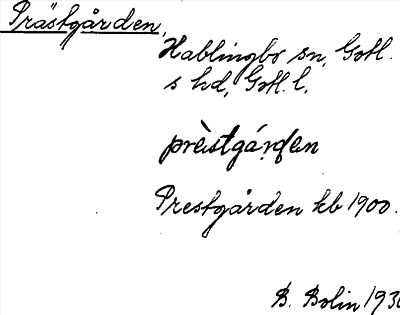 Prästgården,
Hablingbo sn, Gotl.
s hd, Gotl. l.
prä̀stgárden
Prestgården kb 1900.
B. Bolin 193